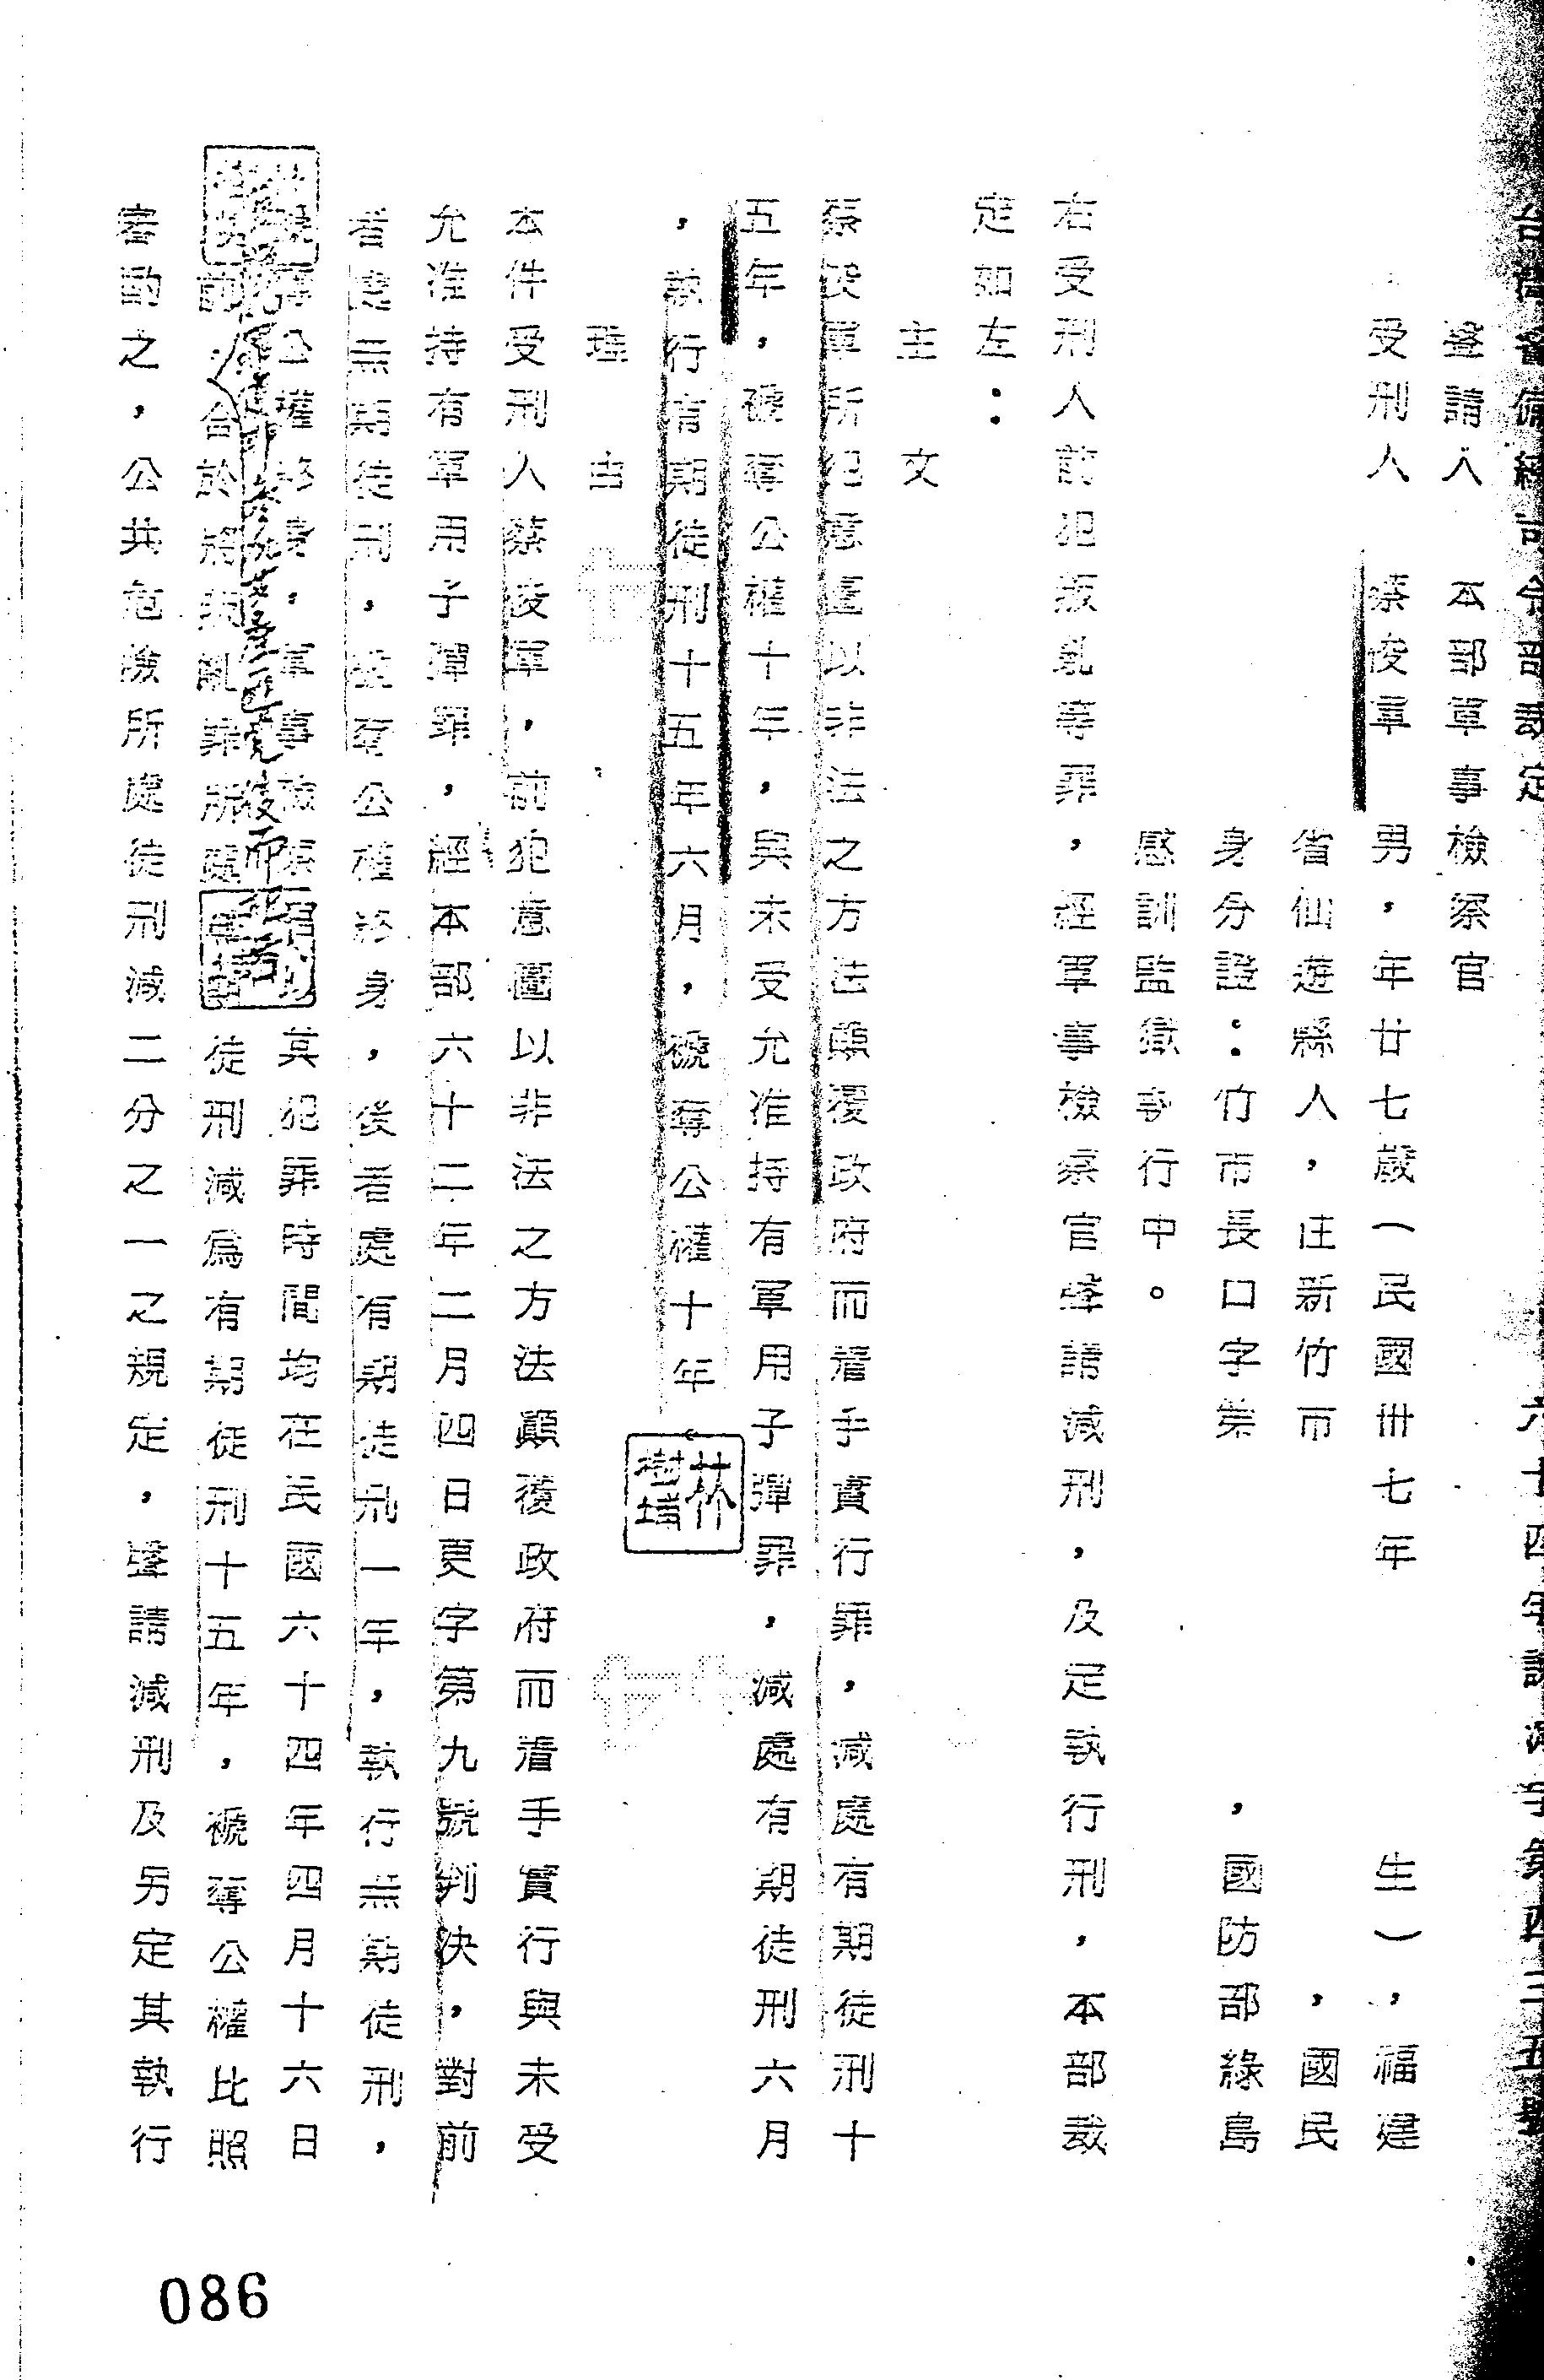 台灣警備總司令部裁定　六十四年諫減字第四三五號
聲請人　本部軍事檢察官
受刑人　蔡俊軍　男，年廿七歲（民國卅七年　生），福建
省仙遊縣人，住新竹市　，國民
身分證：竹市長口字第　，國防部綠島
感訓監獄執行中。
右受刑人前犯叛亂等罪，經軍事檢察官聲請減刑，及定執行刑，本部裁
定如左：
主　文
蔡俊軍所犯意圖以非法之方法顛覆政府而着手實行罪，減處有期徒刑十
五年，褫奪公權十年，與未受允准持有軍用子彈罪，減處有期徒刑六月
，執行有期徒刑十五年六月，褫奪公權十年。
林樹
理　由
本件受刑人蔡俊軍，前犯意圖以非法之方法顛覆政府而着手實行與未受
允准持有軍用子彈罪，經本部六十二年二月四日更字第九號判決，對前
者處無期徒刑，褫奪公權終身，後者處有期徒刑一年，執行無期徒刑，
公權終身，軍事檢察官以其犯罪時間均在民國六十四年四月十六日
前，合於將叛亂罪所處無期徒刑減為有期徒刑十五年，褫奪公權比照
審酌之，公共危險所處徒刑減二分之一之規定，聲請減刑及另定其執行
086